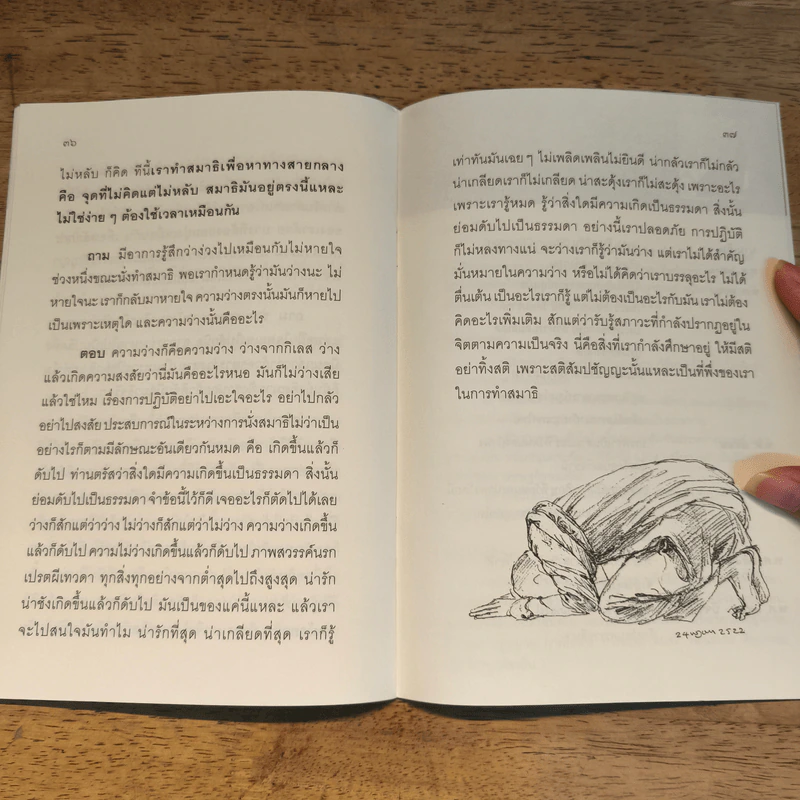 ๓๖
ไม่หลับ ก็คิด ทีนี้เราทำสมาธิเพื่อหาทางสายกลาง
คือ จุดที่ไม่คิดแต่ไม่หลับ สมาธิมันอยู่ตรงนี้แหละ
ไม่ใช่ง่าย ๆ ต้องใช้เวลาเหมือนกัน
ถาม มีอาการรู้สึกว่าง่วงไปเหมือนกับไม่หายใจ
ช่วงหนึ่งขณะนั่งทำสมาธิ พอเรากำหนดรู้ว่ามันว่างนะ ไม่
หายใจนะ เราก็กลับมาหายใจ ความว่างตรงนั้นมันก็หายไป
เป็นเพราะเหตุใด และความว่างนั้นคืออะไร
ตอบ ความว่างก็คือความว่าง ว่างจากกิเลส ว่าง
แล้วเกิดความสงสัยว่านี่มันคืออะไรหนอ มันก็ไม่ว่างเสีย
แล้วใช่ไหม เรื่องการปฏิบัติอย่าไปเอะใจอะไร อย่าไปกลัว
อย่าไปสงสัย ประสบการณ์ในระหว่างการนั่งสมาธิไม่ว่าเป็น
อย่างไรก็ตามมีลักษณะอันเดียวกันหมด คือ เกิดขึ้นแล้วก็
ดับไป ท่านตรัสว่าสิ่งใดมีความเกิดขึ้นเป็นธรรมดา สิ่งนั้น
ย่อมดับไปเป็นธรรมดา จำข้อนี้ไว้ก็ดี เจออะไรก็ตัดไปได้เลย
ว่างก็สักแต่ว่าว่าง ไม่ว่างก็สักแต่ว่าไม่ว่าง ความว่างเกิดขึ้น
แล้วก็ดับไป ความไม่ว่างเกิดขึ้นแล้วก็ดับไป ภาพสวรรค์นรก
เปรตผีเทวดา ทุกสิ่งทุกอย่างจากต่ำสุดไปถึงสูงสุด น่ารัก
น่าชังเกิดขึ้นแล้วก็ดับไป มันเป็นของแค่นี้แหละ แล้วเรา
จะไปสนใจมันทำไม น่ารักที่สุด น่าเกลียดที่สุด เราก็รู้
๓๗
เท่าทันมันเฉย ๆ ไม่เพลิดเพลินไม่ยินดี น่ากลัวเราก็ไม่กลัว
น่าเกลียดเราก็ไม่เกลียด น่าสะดุ้งเราก็ไม่สะดุ้ง เพราะอะไร
เพราะเรารู้หมด รู้ว่าสิ่งใดมีความเกิดเป็นธรรมดา สิ่งนั้น
ย่อมดับไปเป็นธรรมดา อย่างนี้เราปลอดภัย การปฏิบัติ
ก็ไม่หลงทางแน่ จะว่างเราก็รู้ว่ามันว่าง แต่เราไม่ได้สำคัญ
มั่นหมายในความว่าง หรือไม่ได้คิดว่าเราบรรลุอะไร ไม่ได้
ตื่นเต้น เป็นอะไรเราก็รู้ แต่ไม่ต้องเป็นอะไรกับมัน เราไม่ต้อง
คิดอะไรเพิ่มเติม สักแต่ว่ารับรู้สภาวะที่กำลังปรากฏอยู่ใน
จิตตามความเป็นจริง นี่คือสิ่งที่เรากำลังศึกษาอยู่ ให้มีสติ
อย่าทิ้งสติ เพราะสติสัมปชัญญะนั้นแหละเป็นที่พึ่งของเรา
ในการทำสมาธิ
24 2522